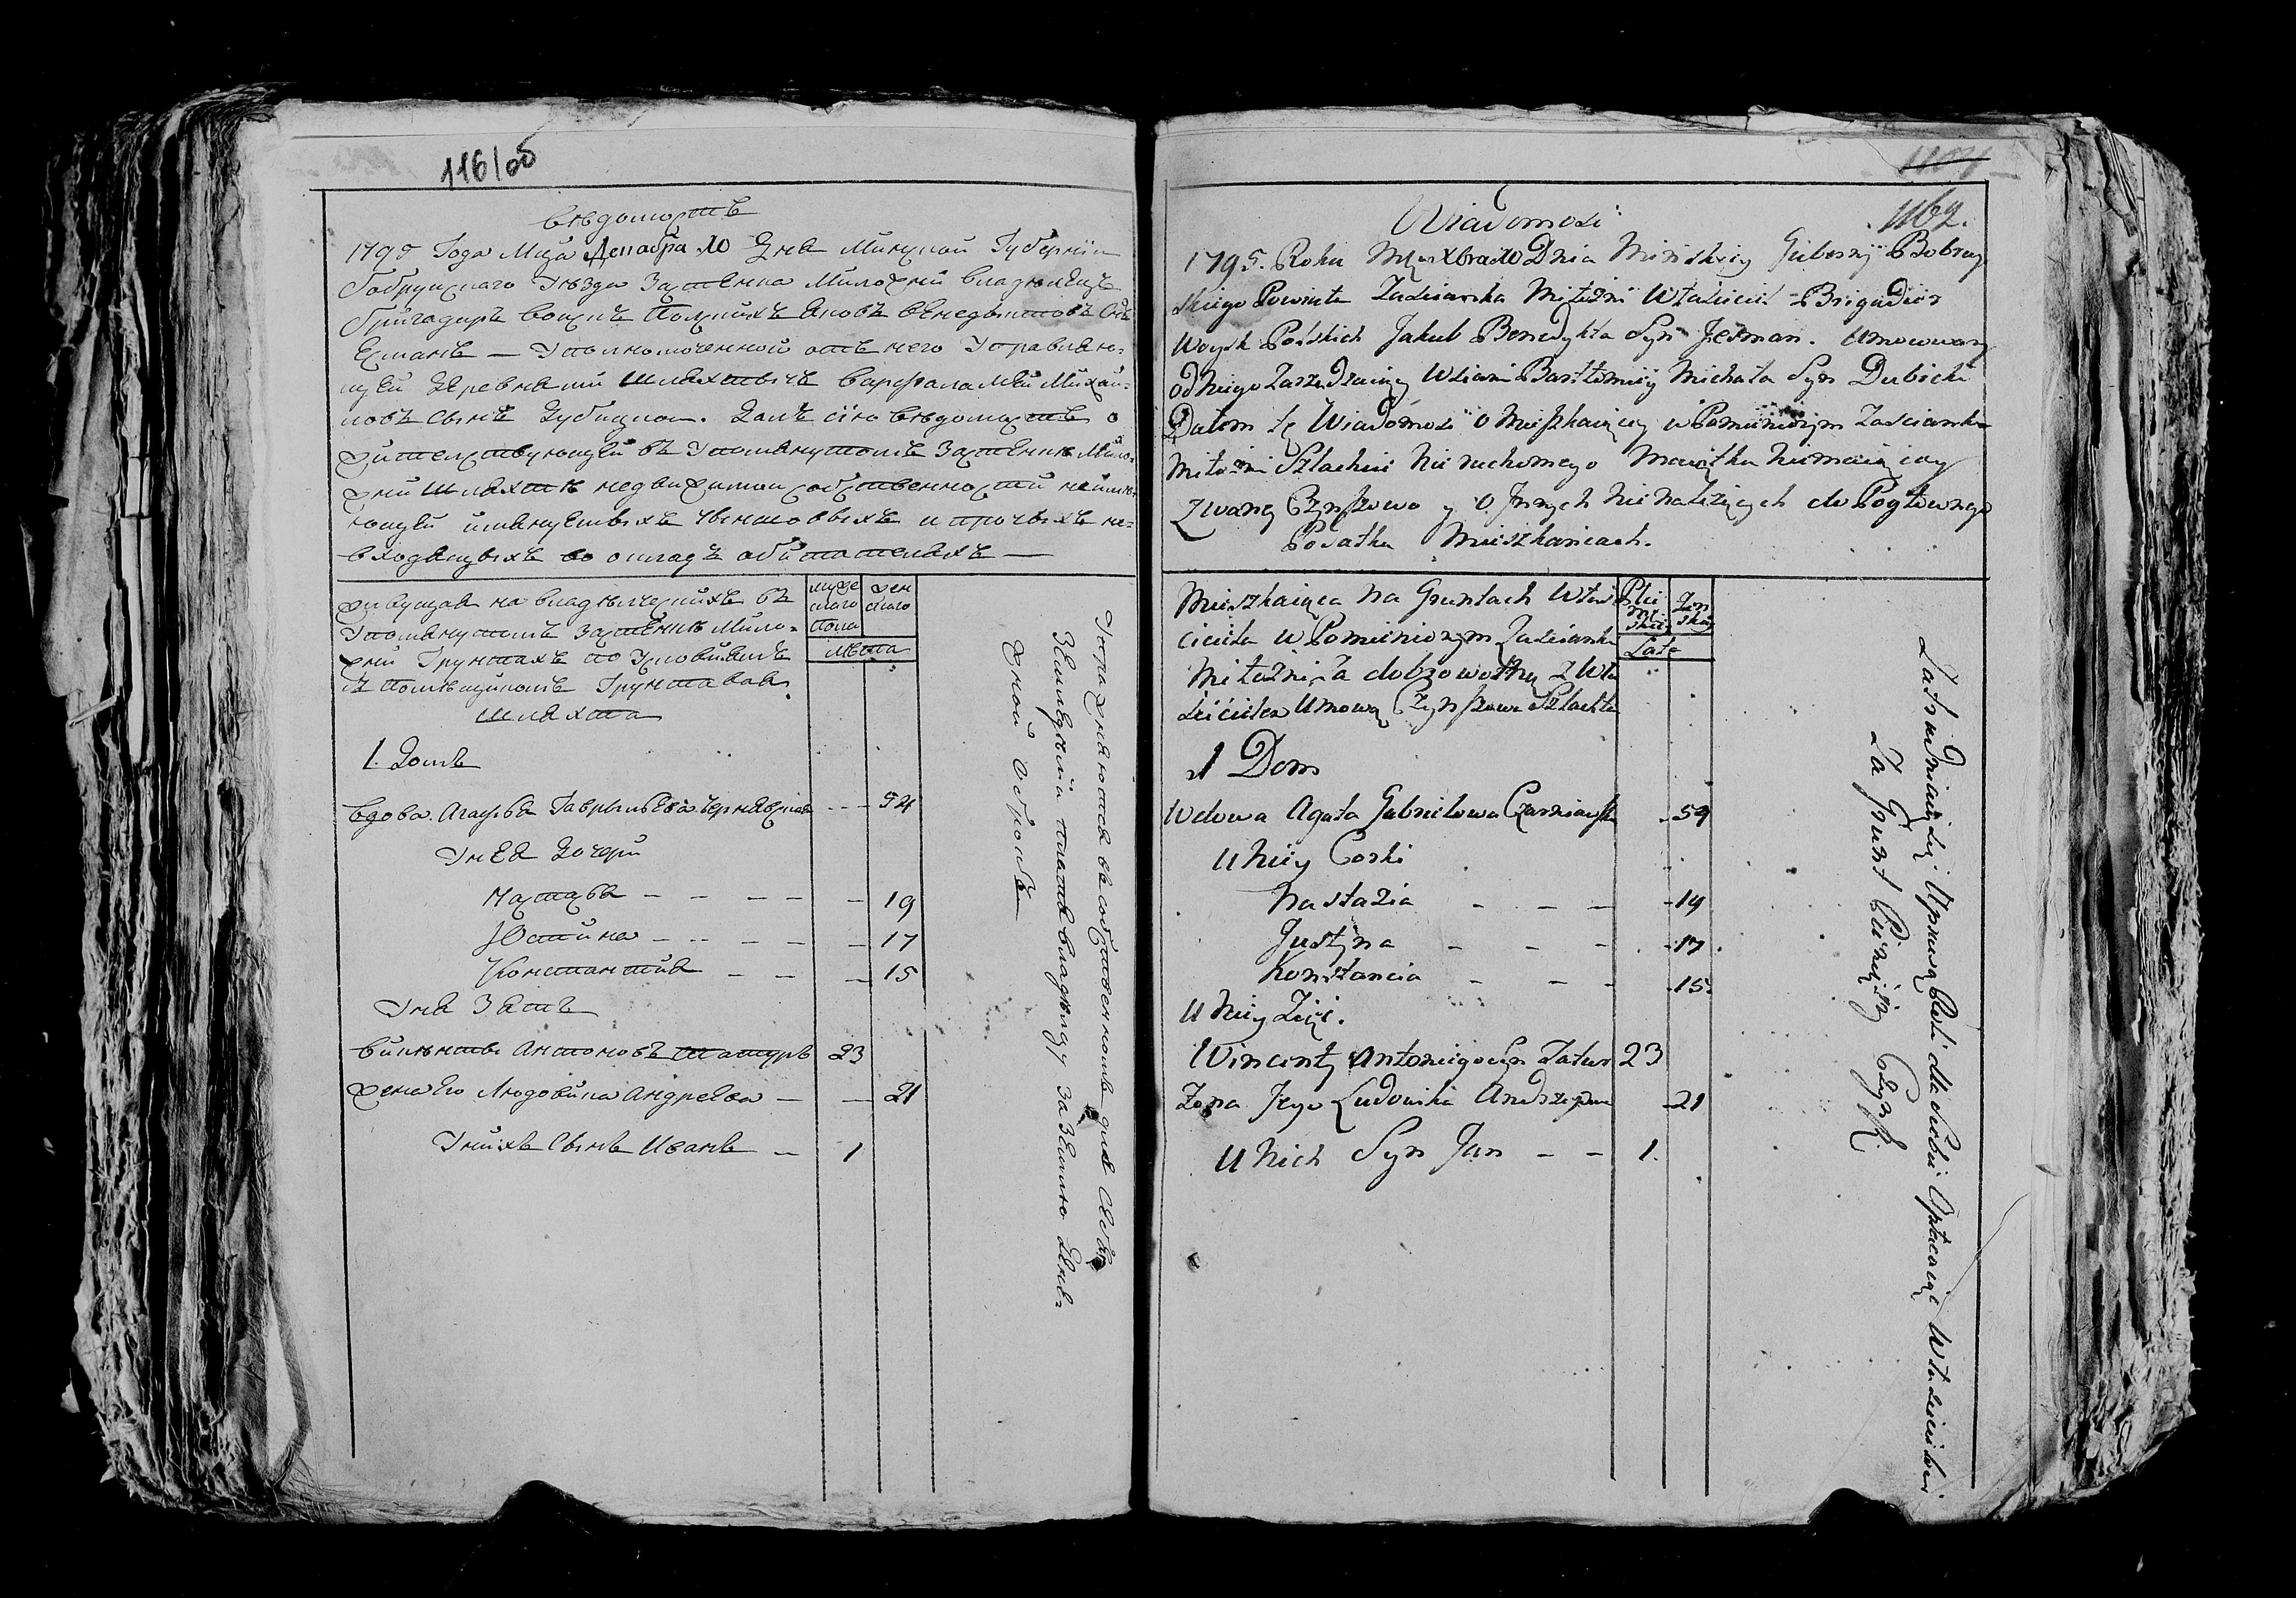 116/об
Вѣдомость
1795 Года Мца Декабря 10 Дня Минской Губернiи
Бобруйскаго Уѣзда Застенка Миложи Владѣлецъ
Бригадиръ Войскъ Польскихъ Яковъ Бенедыктовъ Сынъ
Есманъ — Уполномоченной отъ него Управляю-
щей Деревнями Шляхтичъ Варфаламей Михай-
ловъ Сынъ Дубицкой. Далъ сiю Вѣдомость о
жителствующей въ Упомянутомъ Застенкѣ Мило-
жи Шляхтѣ недвижимои собственности неимѣ-
ющей имянуемыхъ Чыншовыхъ и прочыхъ не-
входящыхъ во окладъ обитателяхъ —
Живущая на Владѣлческихъ въ
Упомянутомъ Застенкѣ Мило-
жи Грунтахъ по Условиямъ
съ помѣщикомъ Грунтовая
Шляхта
муже
скаго
пола
жен
скаго
Лѣта
1. Домъ
Вдова Агафья Гаврыльева Чернявская — — 54
У нея Дочери
Настасья — — — — — 19
Юстина — — — — — 17
Константия — — — 15
У ней Зять
Викентъ Антоновъ Татуръ 23
Жена Его Людовика Андреева — — 21
У нихъ Сынъ Иванъ — 1
Упражняются въ собственномъ для Себя
Земледѣлiи платя владѣлцу за Землю Дене-
жной Оброкъ
1167.
Wiadomość
1795. Roku Mca Xbra 10 Dnia Minskiey Gubernij Bobruy
skiego Powiatu Zascianka Miłożni Własciciel Brigadier
Woysk Polskich Jakub Benedykta Syn Jesman. Umocowany
od Niego Zarządzaiący Wsiami Bartłomiey Michała Syn Dubicki
Dałem tę Wiadomość o Mieszkaiącey w Pomienionym Zascianku
Miłożni Szlachcie Nieruchomego Maiątku Niemaiącey
Zwaney Czynszowo y o Jnnych Nie Należących do Pogłownego
Podatku Mieszkancach.
Mieszkaiąca Na Gruntach Wła
sciciela W Pomienionym Zascianku
Miłożni Za dobrowolną z Wła
scicielem Umową Czynszowa Szlachta
Mę
skiey
Żen
skiey
Lata
1 Dom
Wdowa Agata Gabrielowa Czerniawska - 54
U Niey Corki
Nastazia - — — - 19
Justyna - - - - 17
Konstancia - — - - 15
U Niey Zięć.
Wincenty Antoniego Syn Tatur 23
Zona Jego Ludowika Andrzejowa 21
U Nich Syn Jan — — 1.
Zatrudniaią się Uprawą Roli dla Siebie Opłacaiąc Włascicielowi
Za Grunt Pieniężny Czynsz